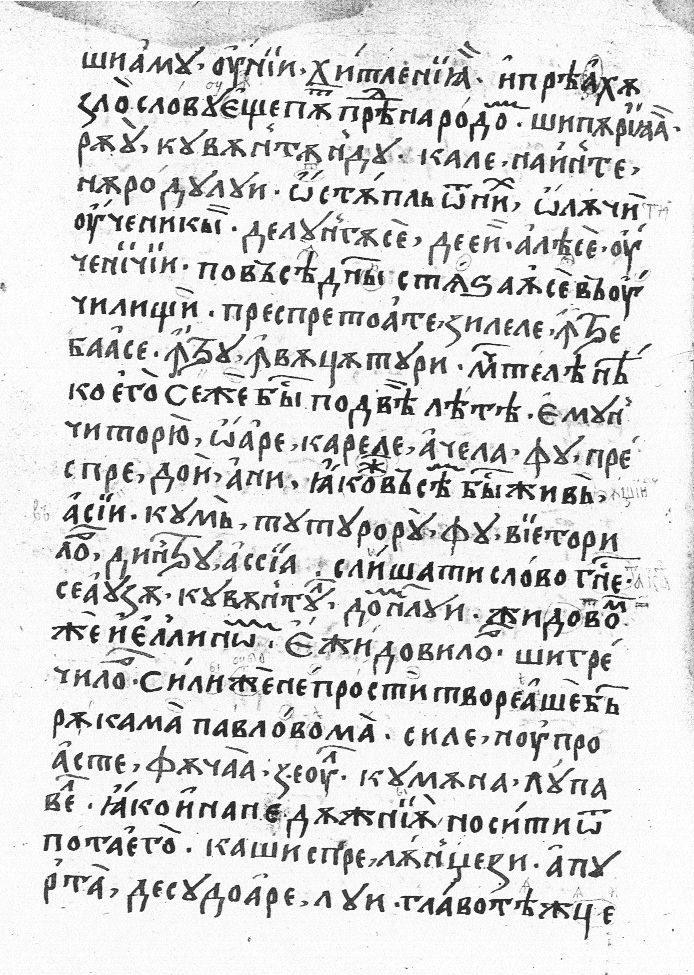 шиамꙋ, ᲂу҆нїи, хи́тлєнїѧ̀. и҆прѣа҆хѫ
ѕло̀словꙋє҆щепѫ прѣ наро́до. шипѫрїѧ̀.
рѫꙋ̀, кꙋвѫн҆тѫн҆дꙋ. кале, наин҆те,
нѫродꙋлꙋи. ѡ҆стѫпль ѿни, ѡ҆лѫчи
ᲂу҆ченикы̀. делꙋн҆гѫсѐ, деей. а҆лѣсѐ, ᲂу҆
ченїчїи. повъсѣ дн҃ы стѧѕаѧ҆сѐ въᲂу҆
чилищи. преспретоа҆те, ꙁилеле, ꙟ҆тре
баасе. ꙟ҆трꙋ, ꙟ҆вѫцѫтꙋри.
кое҆го̀ сеже бы́ подвѣ лѣтѣ. є҆мꙋн҆
читорю̀, ѡ҆аре, кареле, а҆чела, фꙋ, пре
спре, дой, а҆ни, ꙗ҆ковъсѣ бы́ живъ̀,
а҆сїи. кꙋмъ̀, тꙋтꙋрорꙋ̀, фꙋ, вїетори
ло̀, динтрꙋ, ассїа слы́шати слово гн҃е.
сеаꙋзѫ. кꙋвѫн҆тꙋл, домнлꙋи. жидово́м
же и҆е҆ллинѡ. є҆жидовило̀. шигре
чило̀. силиже не прости творѐа҆ше бъ҃
рꙋкама̀ павло́вома̀. силе, нᲂу҆про
а҆сте, фѫча̀а, ꙁеоу҆л. кꙋмѫна, лꙋпа
ве̑л. ꙗ҆кой нане дѫжнїѧ̀ носи́ти ѿ
пота є҆го̀. каши спре, лѫн҆цеꙁи. а҆пꙋ
рта̀, десꙋдоа҆ре, лꙋи. гла́вотѣжце